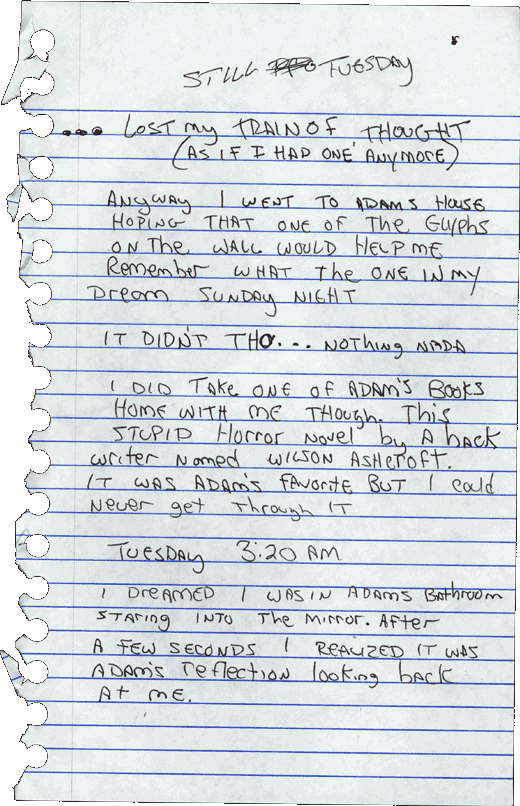 STILL TUESDAY
... LOST my TRAIN OF THOUGHT
(AS IF I HAD ONE ANYMORE)
ANYWAY I WENT TO ADAMS HOUSE
HOPING THAT ONE OF THE GLYPHS
ON THE WALL WOULD HELP ME
Remember WHAT THE ONE IN MY
Dream SUNDAY NIGHT
IT DIDN'T THO... NOTHING NADA
I DID TAKE ONE OF ADAM'S BOOKS
HOME WITH ME THOUGH. This
STUPID Horror Novel by A hack
writer Named WILSON ASHCROFT.
IT WAS ADAM'S FAVORITE BUT I could
Never get Through IT
TUESDAY 3:20 AM
I DREAMED I WAS IN ADAMS Bathroom
STARING INTO THE MIRROR. After
A FEW SECONDS I REALIZED IT WAS
ADAM'S reflection looking back
AT ME.